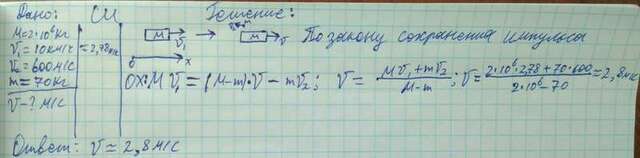 Дано: СИ Решение:
M=2·10⁶кг
V₁=10км/с =2,78м/с
V₂=600м/с
m=70кг
V-? м/с
M V₁ → M V По закону сохранения импульса
0 x
OX: M V₁ = (M-m)·V - mV₂; V = (MV₁+mV₂)/(M-m); V = (2·10⁶·2,78+70·600)/(2·10⁶-70) = 2,8м/с
Ответ: V ≈ 2,8м/с